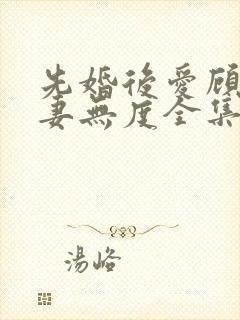 先婚後愛顧
妻無度全集
湯峪